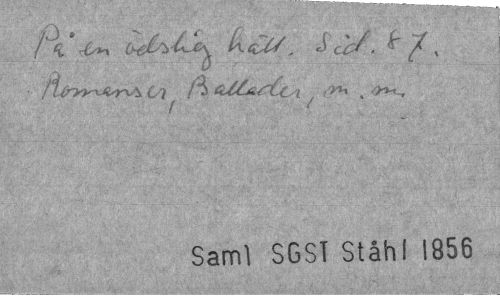 På en ödslig hätt. Sid. 87.
Romanser, Ballader, m. m.
Saml SGST Ståhl 1856